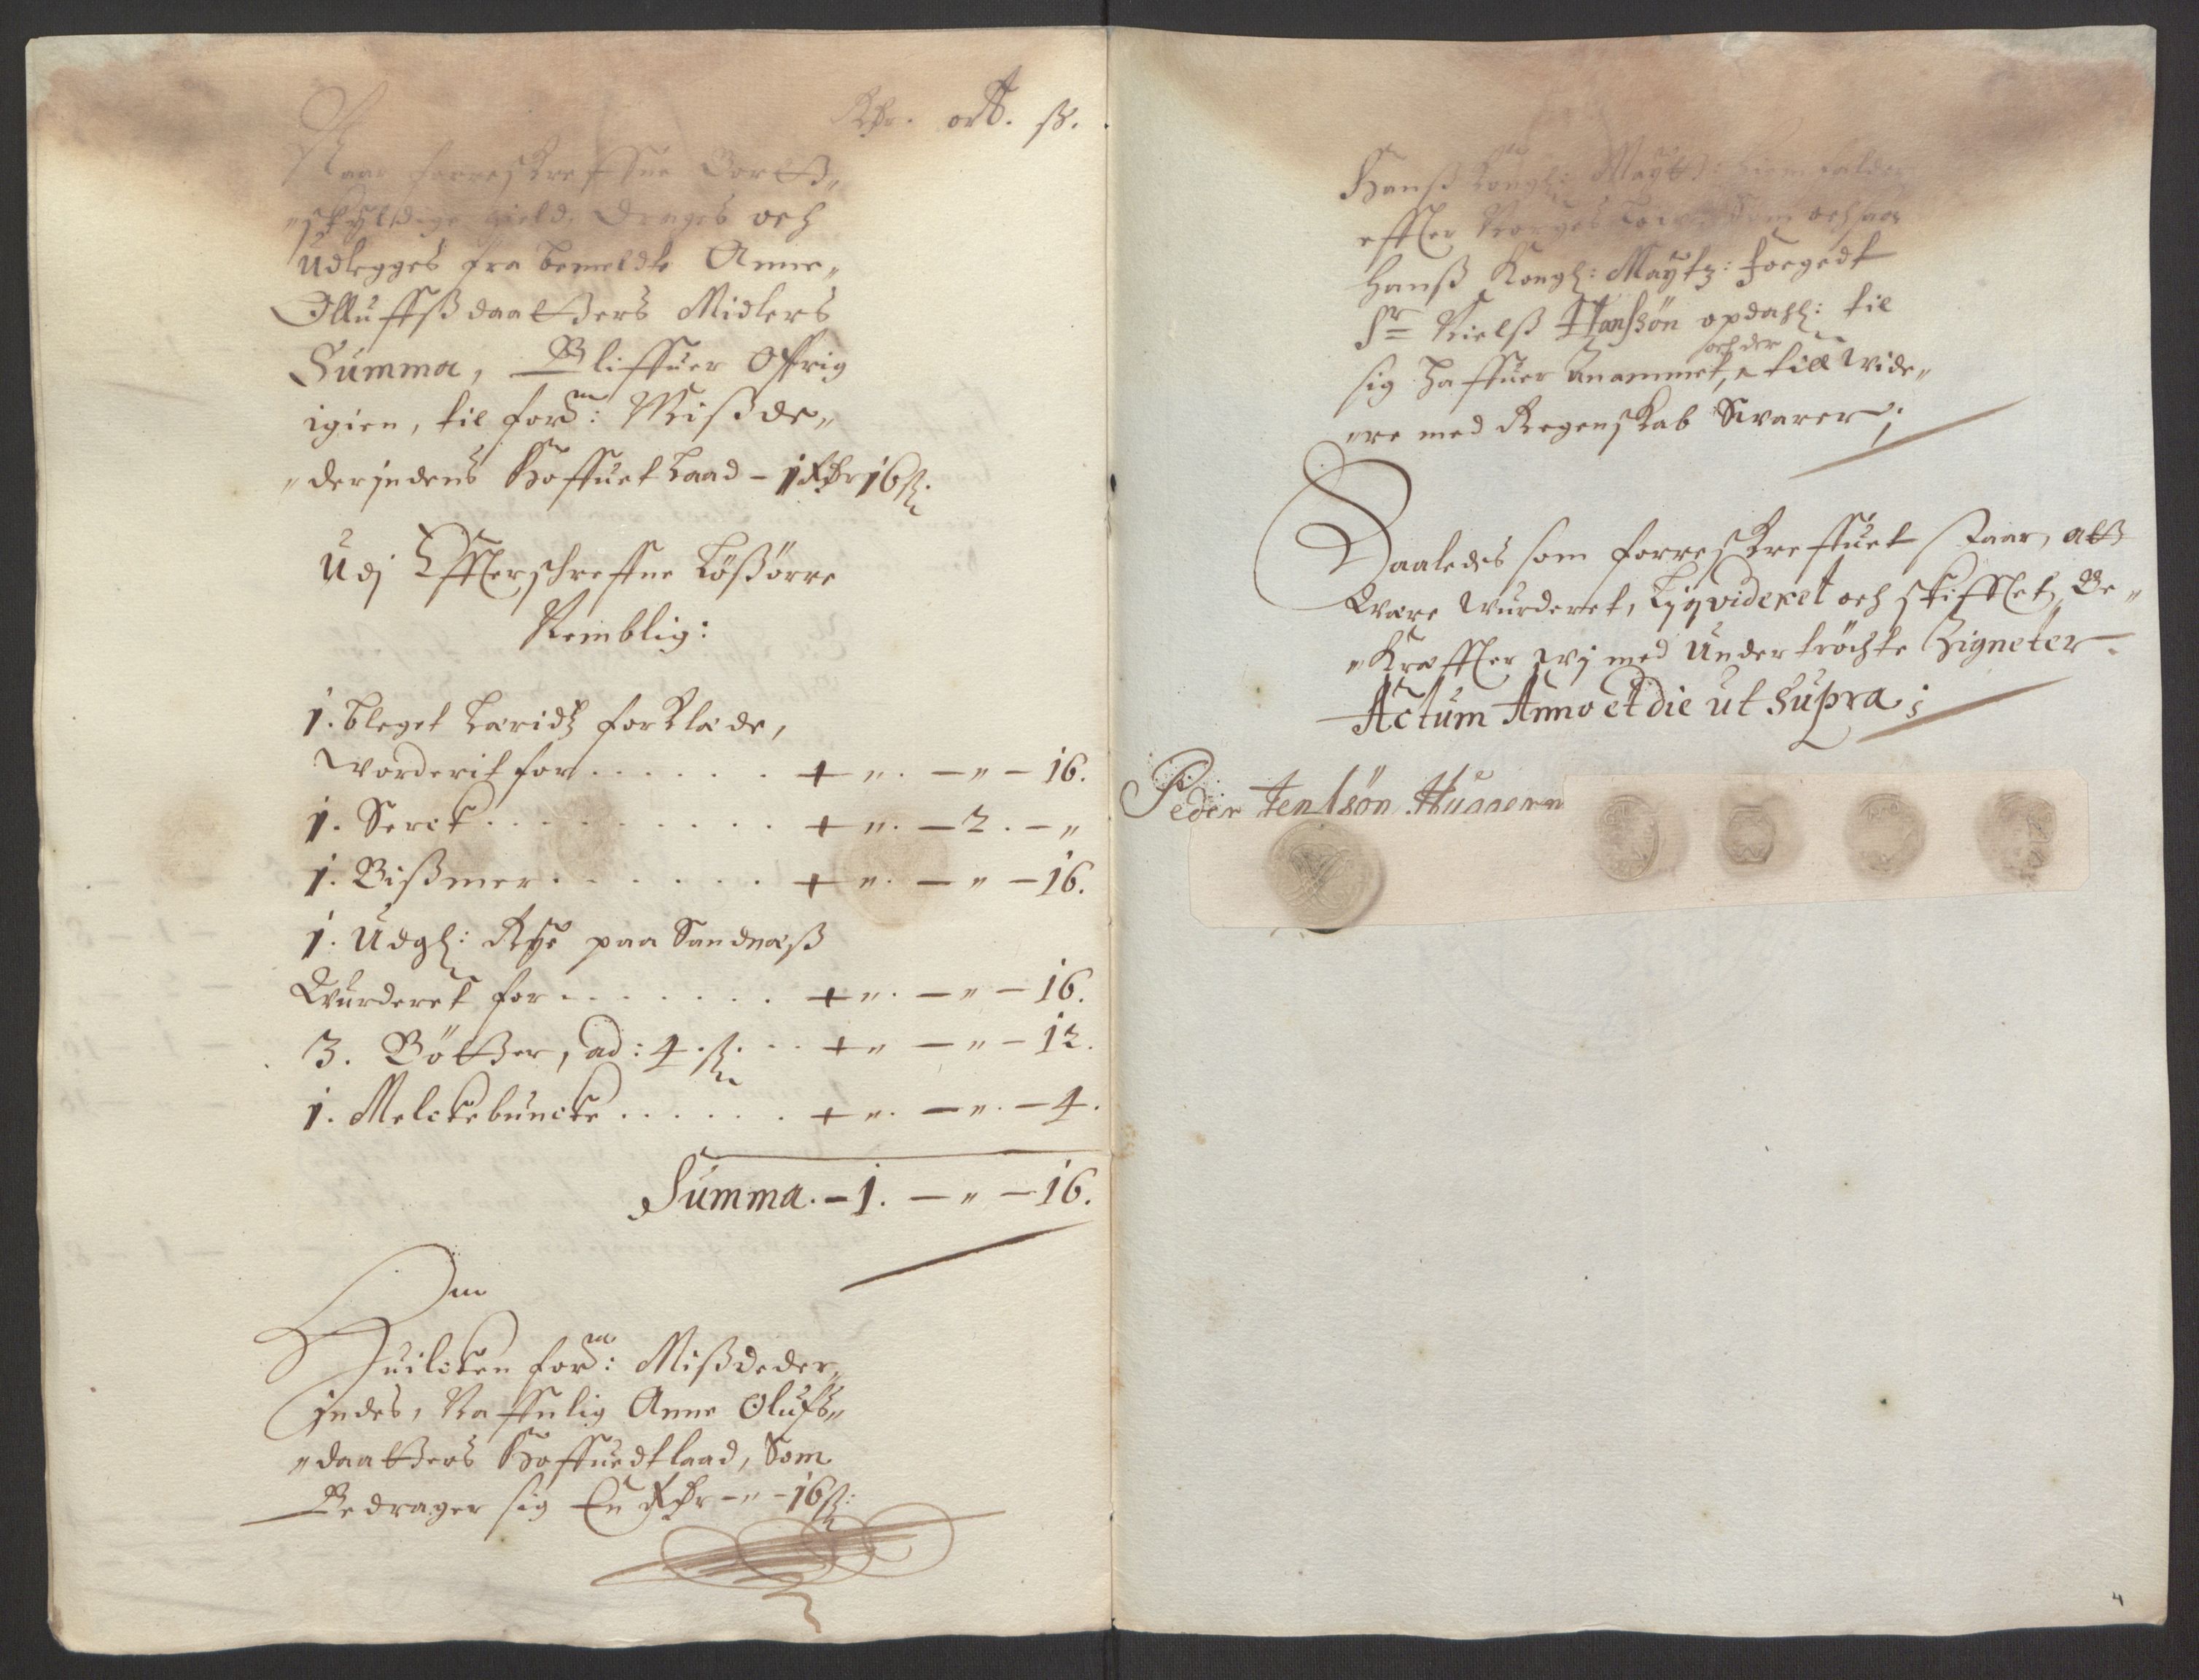 Rdr. ort. ß.
Naar forreskreffne Bortt„
„skyldige gield, drages och
Udlegges fra bemeldte Anne„
Olluffßdaatters Midlers
Summa, Bliffuer Offrig
igien, til forn: Mißde„
„derindens Hoffuet Laad – 1 Rdr 16 ß.
Udj Effterschreffne Lößörre
Nemblig:
1. bleget Læridtz forklæde,
worderit for . . . . . . + „. — „ — 16.
1. Serck . . . . . . . . + „. — 2. — „
1. Bißmer . . . . . . + „. — „ — 16.
1. Udgl: Rye paa Sandnæß
Wurderet for . . . . . . + „. — „ — 16.
3. Bötter, ad: 4 ß. . . + „ — „ — 12.
1. Melckebuncke . . . . . + „. — „. — 4.
Summa. – 1. — „ — 16.
Huilcken forn: Mißdeder„
indes, Naffnlig Anne Olufs„
„daatters Hoffuedtlaad, Som
Bedrager sig En Rdr – „ – 16 ß:
Hanß Kongl: Maytt: hiemfalder
effter Norges Low, som ochsaa
Hanß Kongl: Maytz: foegedt
Sr Nielß Hanßön opdahl: til
sig haffuer Anammet, och der till wide„
„re med Regenskab Swarer;
Saaledes som forreskreffuet staar, att
Være wurderet, Liqvideret och skifftet, Be„
„Kræffter wj med Undertröchte Zigneter.
Actum Anno et die ut Supra;
Peder Jenßön
4